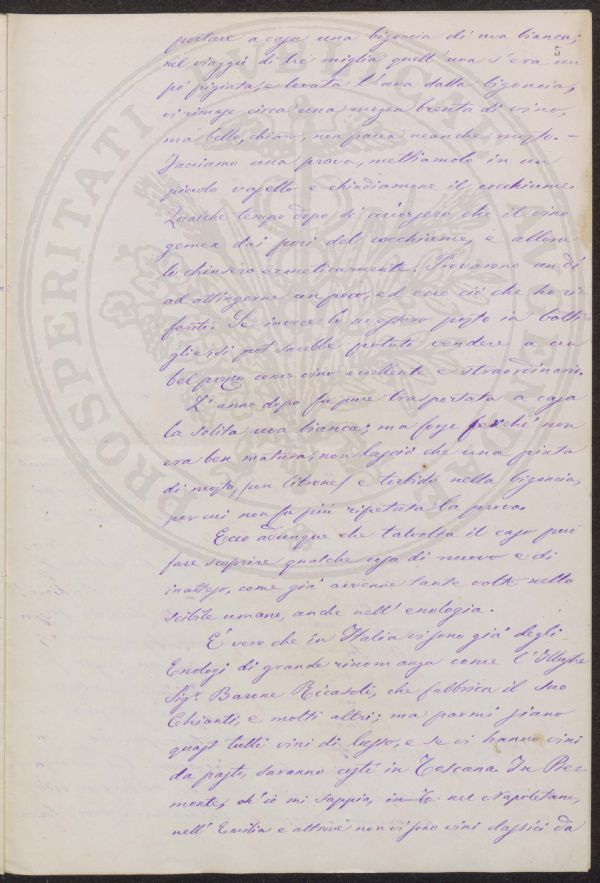 5
portare a casa una bigoncia di uva bianca;
nel viaggio di tre miglia quell'uva s'era un
pò pigiata, e levata l'uva dalla bigoncia,
vi rimase circa una mezza brenta di vino,
ma bello, chiaro, non parea neanche mosto. –
Facciamo una prova, mettiamolo in un
piccolo vasello e chiudiamone il cocchiume.
Qualche tempo dopo si accorsero che il vino
gemea dai pori del cocchiume, e allora
lo chiusero ermeticamente. Provarono un dì
ad attingerne un poco, ed ecco ciò che ho ri
ferito. Se invece lo avessero posto in botti
glie, si sarebbe potuto vendere a un
bel prezzo come vino eccellente e straordinario.
L'anno dopo fu pure trasportata a casa
la solita uva bianca; ma forse perchè non
era ben matura, non lasciò che una pinta
di mosto, (un litrone) e torbido nella bigoncia,
per cui non fu più ripetuta la prova.
Ecco adunque che talvolta il caso può
fare scoprire qualche cosa di nuovo e di
inatteso, come già avvenne tante volte nello
scibile umano, anche nell'enologia.
È vero che in Italia vi sono già degli
Enologi di grande rinomanza come l'Illustre
Sigr. Barone Ricasoli, che fabbrica il suo
Chianti, e molti altri; ma parmi siano
quasi tutti vini di lusso, e se vi hanno vini
da pasto, saranno questi in Toscana. In Pie
monte, ch'io mi sappia, in T. nel Napoletano,
nell'Emilia e altrove non vi sono vini classici da
PROSPERITATI VEL GLORIAE AUGENDAE